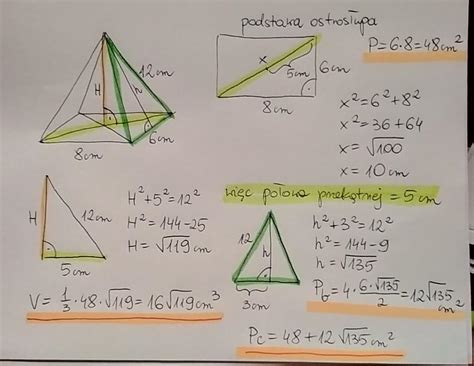 podstawa ostrosłupa
P=6·8=48cm²
H
12cm
h
6cm
8cm
x
5cm
6cm
8cm
x²=6²+8²
x²=36+64
x=√100
x=10cm
więc połowa przekątnej = 5cm
H
12cm
5cm
H²+5²=12²
H²=144-25
H=√119 cm
12
h
3cm
h²+3²=12²
h²=144-9
h=√135
V=1/3·48·√119=16√119 cm³
Pb=4·6·√135/2=12√135 cm²
Pc=48+12√135 cm²